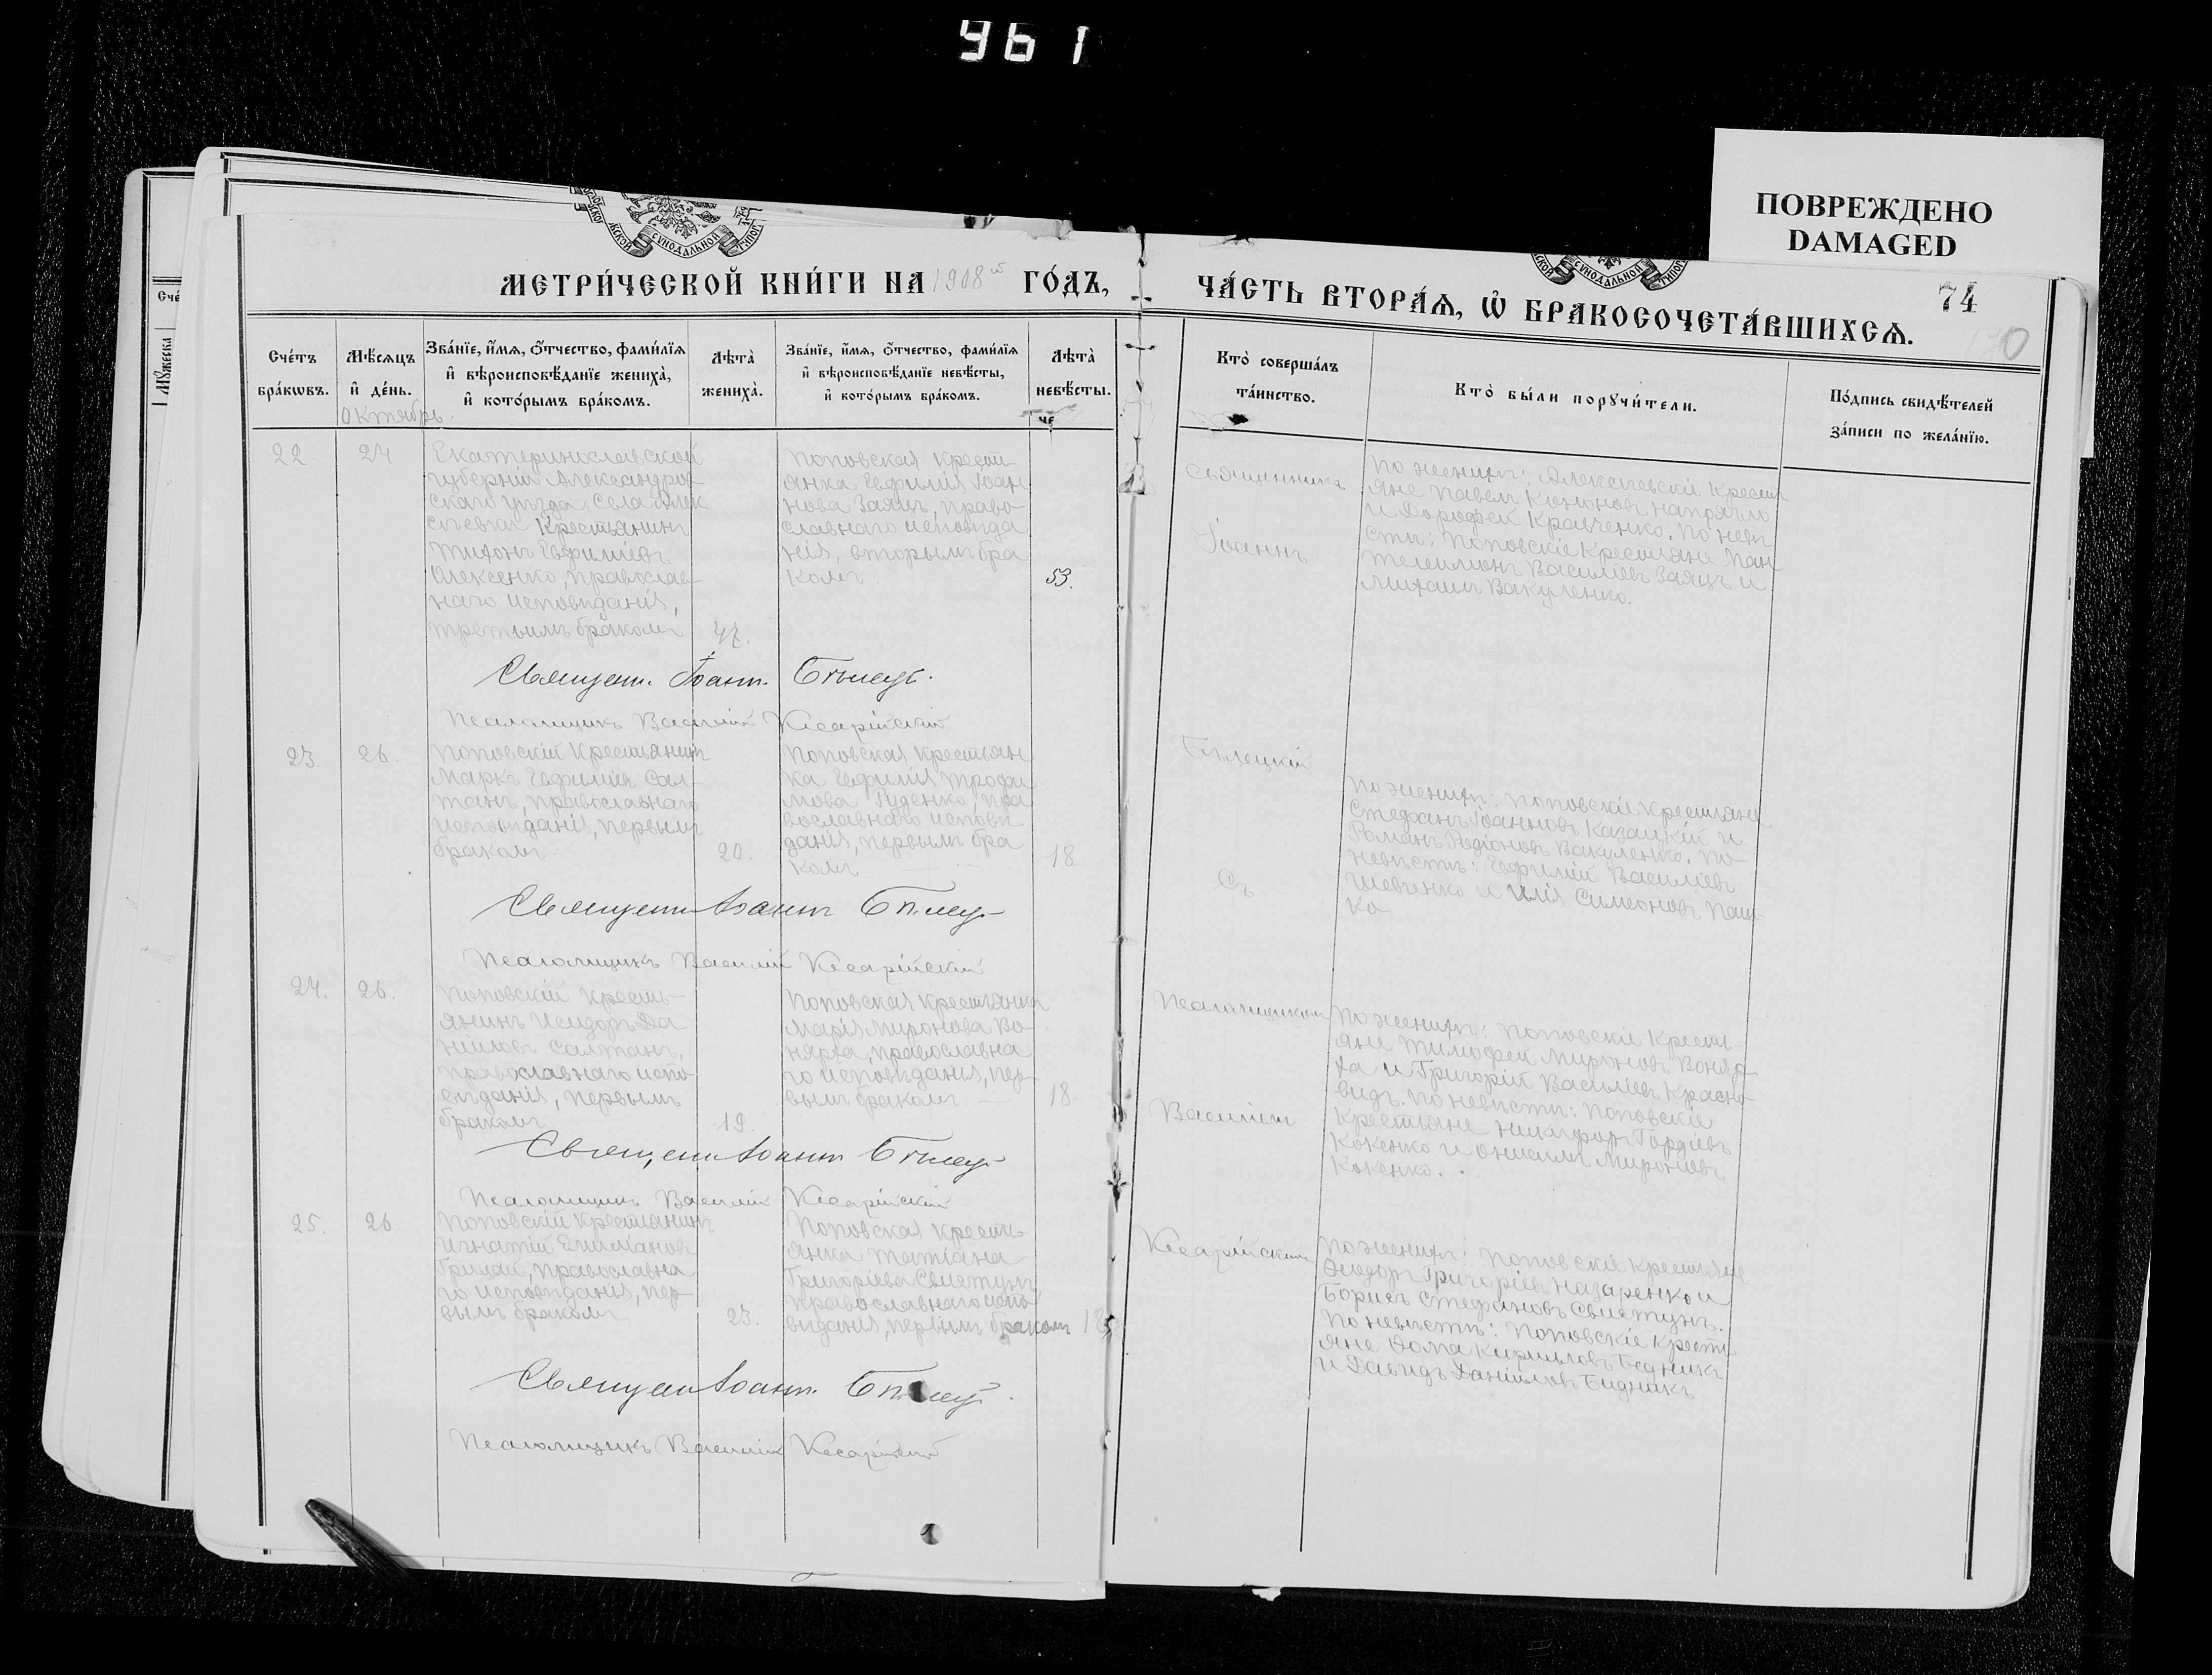 961
ПОВРЕЖДЕНО
DAMAGED
сѵнодальной
сѵнодальной
метри́ческой кни́ги на 1908й го́дъ,
ча́сть втора́ѧ, ѡ҆ бракосочета́вшихсѧ.
74
Сче́тъ бра́кѡвъ.
Мѣ́сѧцъ и҆ де́нь.
Зва́нїе, и҆́мѧ, ѻ҆́тчество, фами́лїѧ и҆ вѣроисповѣ́данїе жениха̀, и҆ кото́рымъ бра́комъ.
Лѣта̀ жениха̀.
Зва́нїе, и҆́мѧ, ѻ҆́тчество, фами́лїѧ и҆ вѣроисповѣ́данїе невѣ́сты, и҆ кото́рымъ бра́комъ.
Лѣта̀ невѣ́сты.
Кто̀ соверша́лъ та́инство.
Кто̀ бы́ли порꙋчи́тели.
По́дпись свидѣ́телей за́писи по жела́нїю.
Октябрь.
22
24
Екатеринославской
губерніи Александров
скаго уѣзда, села Алек
сѣевки Крестьянинъ
Тихонъ Евфиміевъ
Алексенко, православ
наго исповѣданія,
третьимъ бракомъ
47.
Поповская крести
янка Евфимія Іоан
нова Заяцъ, право
славнаго исповѣда
нія, вторымъ бра
комъ
53.
Священникъ
Іоаннъ
По женихѣ: Алексѣевскіе крестья
яне Павелъ Кононовъ Напрягло
и Дорофей Кравченко. По невѣ
стѣ: Поповскіе Крестьяне Пан
телеимонъ Василіевъ Заяцъ и
Михаилъ Вакуленко.
Священ. Іоанн. Бѣлец.
Псаломщикъ Василій Кесарійскій
23.
26.
Поповскій Крестьянинъ
Маркъ Евфиміевъ Сал-
танъ, православнаго
исповѣданія, первымъ
бракомъ
20.
Поповская крестьян
ка Евфимія Трофи
мова Руденко, пра
вославнаго исповѣ
данія, первымъ бра
комъ
18
Бѣлецкій
Съ
По женихѣ: Поповскіе крестьяне
Стефанъ Іоанновъ Казацкій и
Романъ Родіоновъ Вакуленко. По
невѣстѣ: Евфимій Василіевъ
Шевченко и Илія Симеоновъ Паш
ко
Священ Іоаннъ Бѣлец
Псаломщикъ Василій Кесарійскій
24.
26.
Поповскій кресть-
янинъ Исидоръ Да
ніиловъ Салтанъ,
православнаго испо
вѣданія, первымъ
бракомъ
19.
Поповская крестьянка
Марія Миронова Во-
нярха, православна
го исповѣданія, пер-
вымъ бракомъ
18
Псаломщикомъ
Василіемъ
По женихѣ: Поповскіе Кресть
яне Тимофей Мироновъ Воняр-
ха и Григорій Василіевъ Красно-
видъ. По невѣстѣ: Поповскіе
Крестьяне Никифоръ Гордіевъ
Кокенко и Онисимъ Мироновъ
Кокенко.
Священ Іоаннъ Бѣлец
Псаломщикъ Василій Кесарійскій
25.
26
Поповскій Крестьянинъ
Игнатій Епифановъ
Грицай, православна
го исповѣданія, пер-
вымъ бракомъ
23.
Поповская кресть-
янка Татіана
Григоріева Свистунъ
православнаго испо
вѣданія, первымъ бракомъ
18
Кесарійскимъ
По женихѣ: Поповскіе крестьяне
Ѳеодоръ Григоріевъ Назаренко и
Борисъ Стефановъ Свистунъ.
По невѣстѣ: Поповскіе крести
яне Ѳома Кирилловъ Бедникъ
и Давидъ Даніиловъ Бидникъ
Священ Іоанн. Бѣлец
Псаломщикъ Василій Кесарійскій